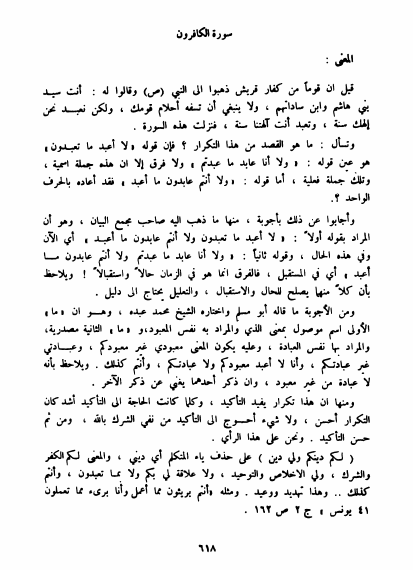 سورة الكافرون
المعنى :
قيل ان قوماً من كفار قريش ذهبوا الى النبي (ص) وقالوا له : أنت سيد
بني هاشم وابن ساداتهم ، ولا ينبغي أن تسفه أحلام قومك ، ولكن نعبد نحن
إلهك سنة ، وتعبد أنت آلهتنا سنة ، فنزلت هذه السورة .
وتسأل : ما هو القصد من هذا التكرار ؟ فإن قوله « لا أعبد ما تعبدون »
هو عين قوله : « ولا أنا عابد ما عبدتم » ولا فرق إلا ان هذه جملة اسمية ،
وتلك جملة فعلية ، أما قوله : « ولا أنتم عابدون ما أعبد » فقد أعاده بالحرف
الواحد ؟.
وأجابوا عن ذلك بأجوبة ، منها ما ذهب اليه صاحب مجمع البيان ، وهو أن
المراد بقوله أولاً : « لا أعبد ما تعبدون ولا أنتم عابدون ما أعبد » أي الآن
وفي هذه الحال ، وقوله ثانياً : « ولا أنا عابد ما عبدتم ولا أنتم عابدون ما
أعبد » أي في المستقبل ، فالفرق انما هو في الزمان حالاً واستقبالاً ! ويلاحظ
بأن كلاً منهما يصلح للحال والاستقبال ، والتعليل يحتاج الى دليل .
ومن الأجوبة ما قاله أبو مسلم واختاره الشيخ محمد عبده ، وهو ان « ما »
الأولى اسم موصول بمعنى الذي والمراد به نفس المعبود، و « ما » الثانية مصدرية،
والمراد بها نفس العبادة ، وعليه يكون المعنى معبودي غير معبودكم ، وعبادتي
غير عبادتكم ، وأنا لا أعبد معبودكم ولا عبادتكم ، وأنتم كذلك . ويلاحظ بأنه
لا عبادة من غير معبود ، وان ذكر أحدهما يغني عن ذكر الآخر .
ومنها ان هذا تكرار يفيد التأكيد ، وكلما كانت الحاجة الى التأكيد أشد كان
التكرار أحسن ، ولا شيء أحوج الى التأكيد من نفي الشرك بالله ، ومن ثم
حسن التأكيد . ونحن على هذا الرأي .
( لكم دينكم ولي دين ) على حذف ياء المتكلم أي ديني ، والمعنى لكم الكفر
والشرك ، ولي الاخلاص والتوحيد ، ولا علاقة لي بكم ولا بما تعبدون ، وأنتم
كذلك .. وهذا تهديد ووعيد . ومثله «أنتم بريئون مما أعمل وأنا بريء مما تعملون
٤١ يونس » ج ٢ ص ١٦٢ .
٦١٨